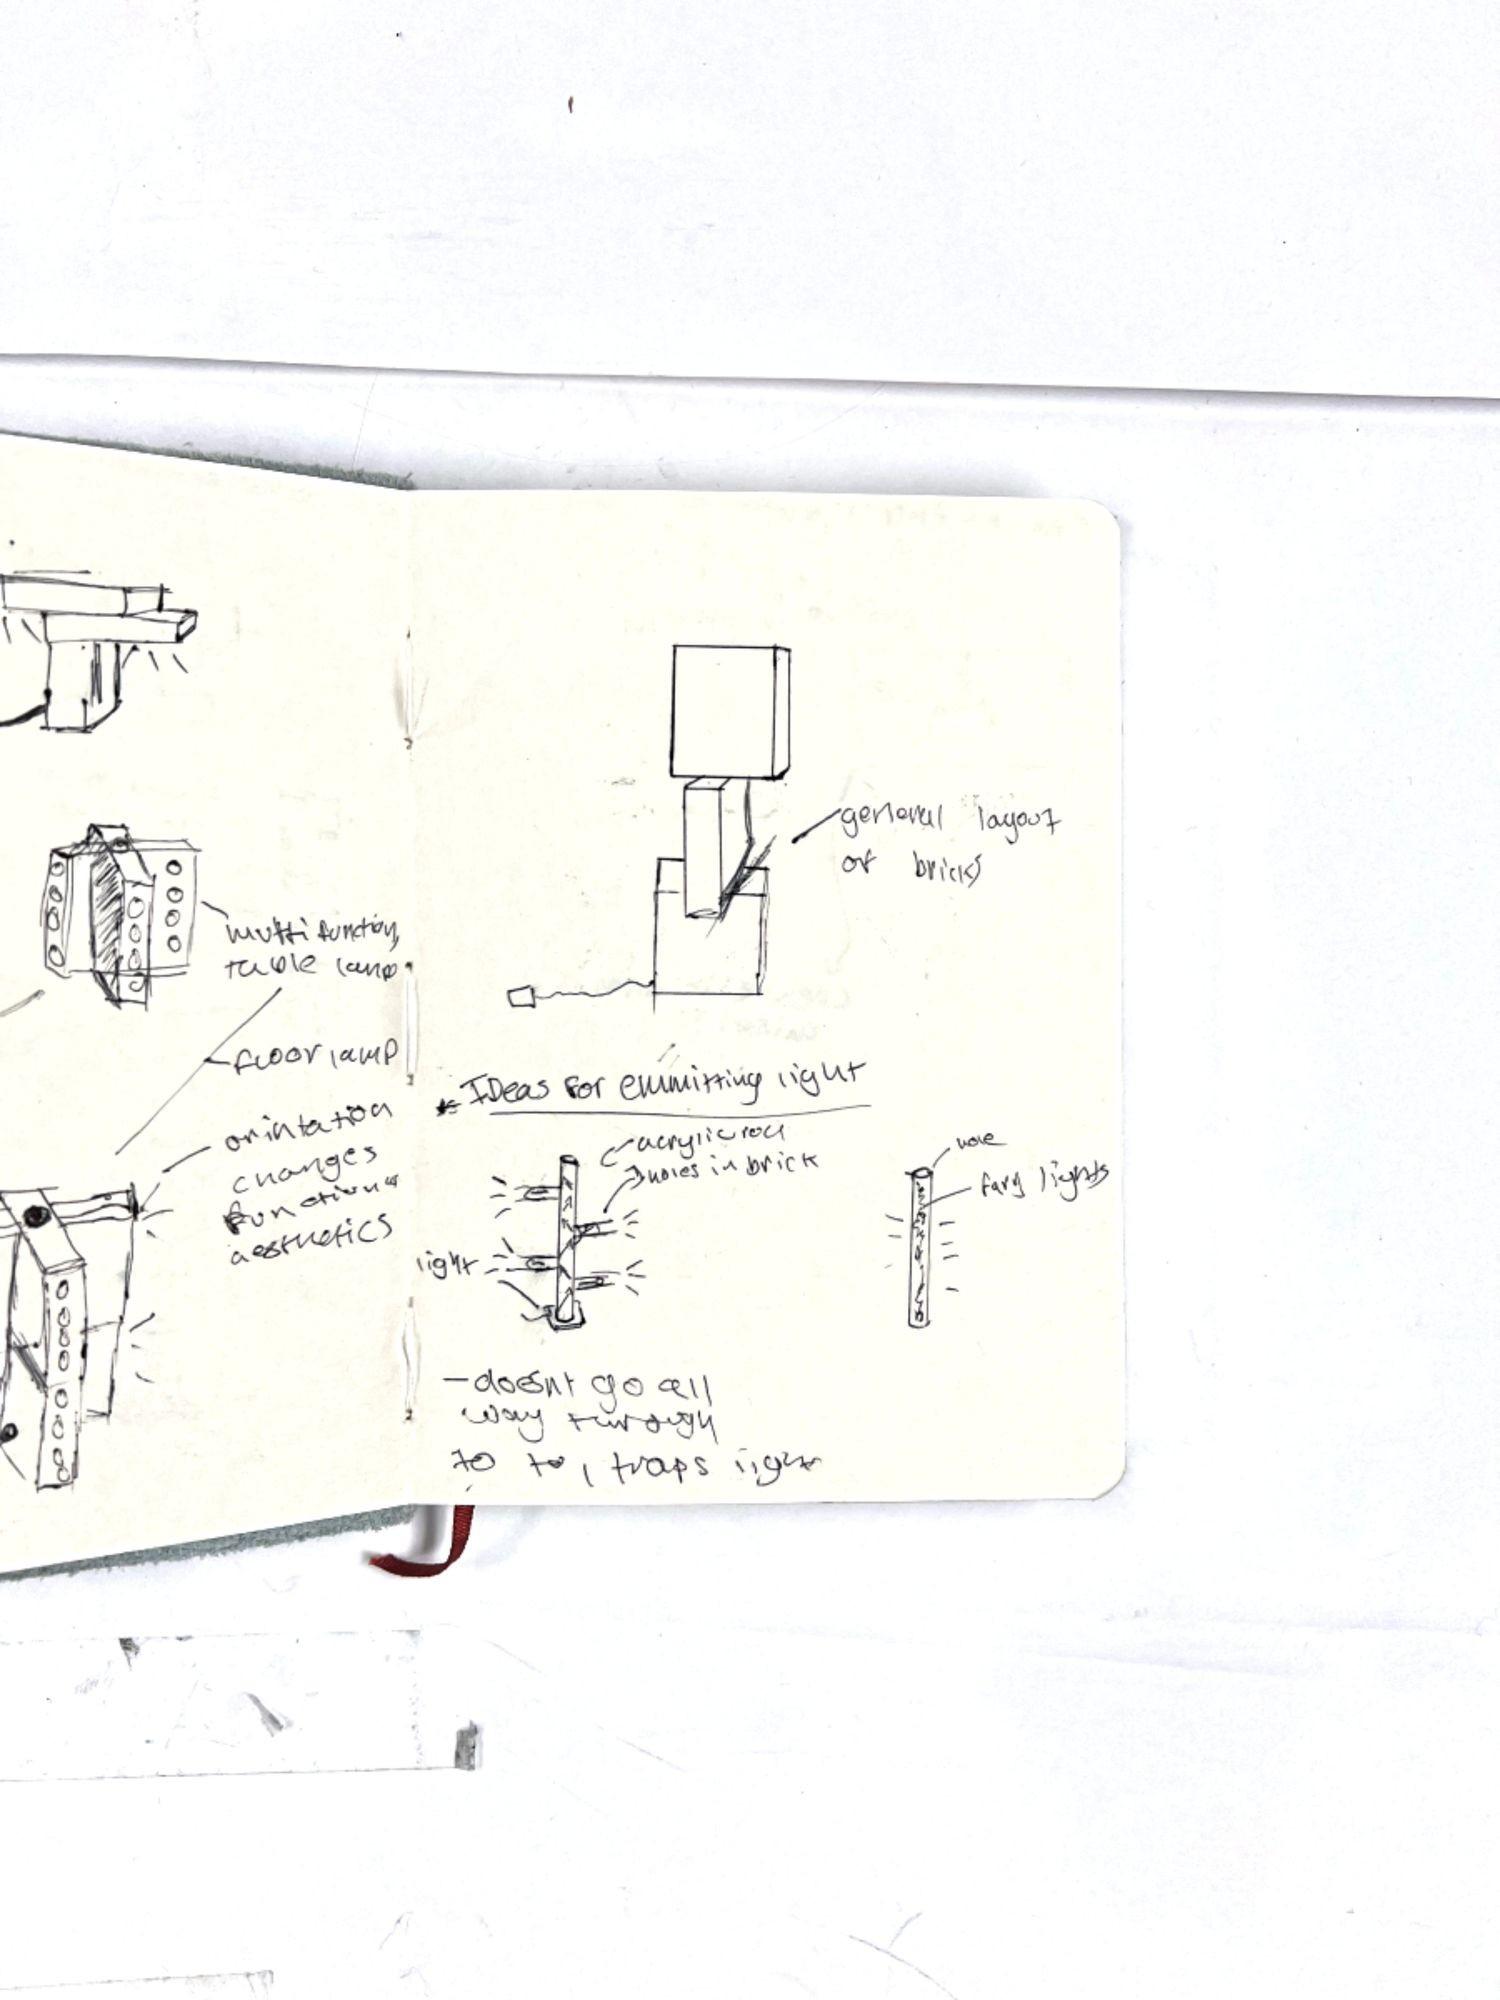 multi function,
table lamp
floor lamp
orintation
changes
function
aesthetics
general layout
of bricks
IDeas for emmitting light
acrylic rod
holes in brick
light
fary lights
- doesnt go all
way through
to to, traps light